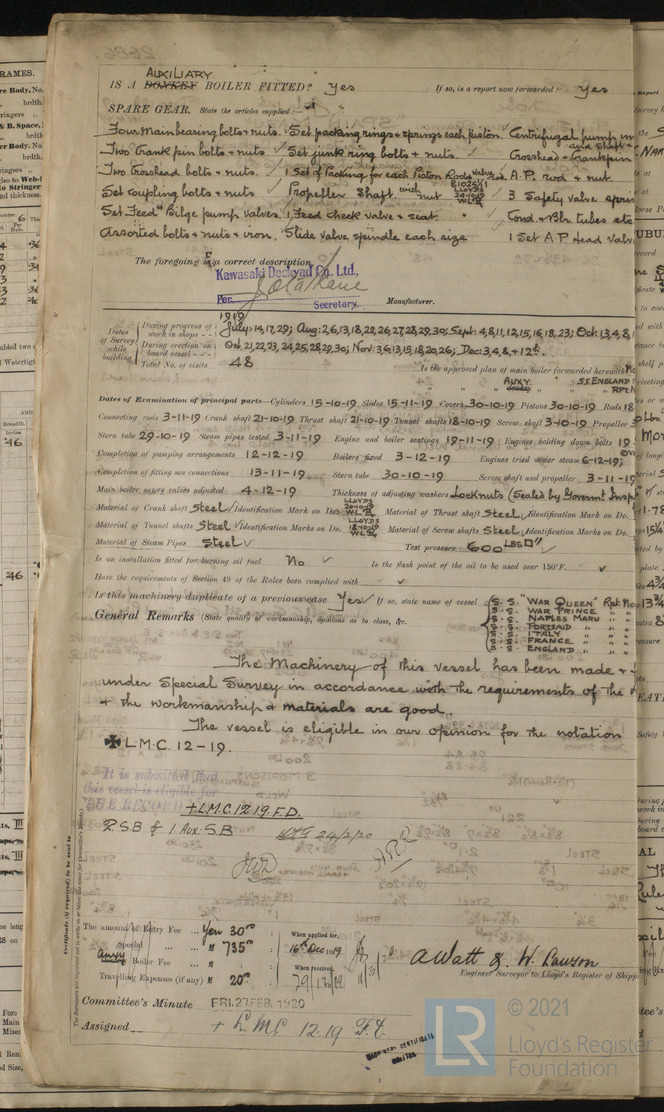 AUXILIARY
IS A DONKEY BOILER FITTED? Yes If so, is a report now forwarded? Yes
SPARE GEAR. State the articles supplied:
Four Main bearing bolts & nuts. Set packing rings & springs each piston Centrifugal pump
and shaft
Two Crank pin bolts & nuts ✓ Set junk ring bolts & nuts. ✓ Crosshead & Crankpin
Two Crosshead bolts & nuts. ✓ 1 Set of Packing for each Piston Rods A.P. rod & nut
Set coupling bolts & nuts ✓ Propeller Shaft. with nut ✓ 3 Safety valve
LLOYDS
Set Feed & Bilge pump valves. 1 Feed check valve & seat. ✓ Cond & Blr. tubes etc
Assorted bolts & nuts & iron. Slide valve spindle each size 1 Set A.P. Head
The foregoing is a correct description
Kawasaki Dockyard Co., Ltd.,
Per Secretary. Manufacturer.
1919
Dates of Survey while building
During progress of work in shops -- July: 14, 17, 29; Aug: 2, 6, 13, 18, 22, 26, 27, 28, 29, 30; Sept: 4, 8, 11, 12, 15, 16, 18, 23; Oct: 13, 4, 8,
During erection on board vessel --- Oct. 21, 22, 23, 24, 25, 28, 29, 30; Nov: 3, 6, 13, 15, 18, 20, 26; Dec: 3, 4, 8, & 12th.
Total No. of visits 48 Is the approved plan of main boiler forwarded herewith
" " " AUXY donkey " " " SS ENGLAND
Dates of Examination of principal parts—Cylinders 15-10-19 Slides 15-11-19 Covers 30-10-19 Pistons 30-10-19 Rods 18
Connecting rods 3-11-19 Crank shaft 21-10-19 Thrust shaft 21-10-19 Tunnel shafts 18-10-19 Screw shaft 3-10-19 Propeller
Stern tube 29-10-19 Steam pipes tested 3-11-19 Engine and boiler seatings 19-11-19 Engines holding down bolts 19
Completion of pumping arrangements 12-12-19 Boilers fixed 3-12-19 Engines tried under steam 6-12-19;
Completion of fitting sea connections 13-11-19 Stern tube 30-10-19 Screw shaft and propeller 3-11-19
Main boiler safety valves adjusted 4-12-19 Thickness of adjusting washers Locknuts (Sealed by Governmt Insp
Material of Crank shaft Steel ✓ Identification Mark on Do. LLOYDS 20-10-19 W.L.B. Material of Thrust shaft Steel Identification Mark on Do.
Material of Tunnel shafts Steel ✓ Identification Marks on Do. LLOYDS 18-10-19 W.L.B. Material of Screw shafts Steel Identification Marks on Do.
Material of Steam Pipes Steel ✓ Test pressure 600 LBS □" ✓
Is an installation fitted for burning oil fuel No ✓ Is the flash point of the oil to be used over 150°F. ✓
Have the requirements of Section 49 of the Rules been complied with ✓
Is this machinery duplicate of a previous case Yes ✓ If so, state name of vessel
S.S. "WAR QUEEN" Rpt. No
S.S. WAR PRINCE " "
S.S. NAPLES MARU " "
S.S. PORTSAID " "
S.S. ITALY " "
S.S. FRANCE " "
S.S. ENGLAND " "
General Remarks (State quality of workmanship, opinions as to class, &c.
The Machinery of this vessel has been made &
under Special Survey in accordance with the requirements of the
& the workmanship & materials are good.
The vessel is eligible in our opinion for the notation
✠ L.M.C. 12-19.
It is submitted that
this vessel is eligible for
THE RECORD + L.M.C. 12.19. F.D.
2 S.B & 1 Aux: S.B 24/2/20
Certificate (if required) to be sent to
The amount of Entry Fee ... Yen 30.00 When applied for,
Special ... ... " 735.00 16th Dec 1919
auxy Boiler Fee ... " When received,
Travelling Expenses (if any) " 20.00
A Watt & W. Lawson
Engineer Surveyor to Lloyd's Register of Shipp
Committee's Minute FRI. 27 FEB. 1920
Assigned + L.M.C. 12.19 F.D.
MACHINERY CERTIFICATE
© 2021
LR Lloyd's Register
Foundation